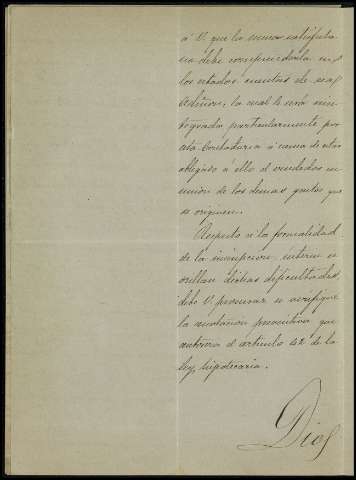 á V. que la misma satisfecha
no debe comprenderla en
los estados cuentas de esa
Admon, la cual le será rein-
tegrada particularmente por
esta Contaduria á causa de estar
obligado á ello el vendedor en
union de los demas gastos que
se originen.
Respecto á la formalidad
de la inscripcion, interin se
orillan dichas dificultades,
debe V. procurar se verifique
la anotacion preventiva que
autoriza el articulo 42 de la
ley hipotecaria.
Dios